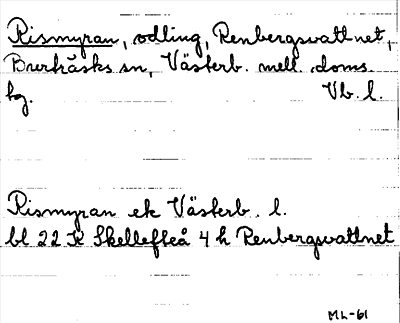 Rismyran, odling, Renbergsvattnet,
Burträsks sn, Västerb. mell. doms.
hg. Vb. l.
Rismyran ek Västerb. l.
bl 22 K Skellefteå 4 h Renbergsvattnet
ML-61